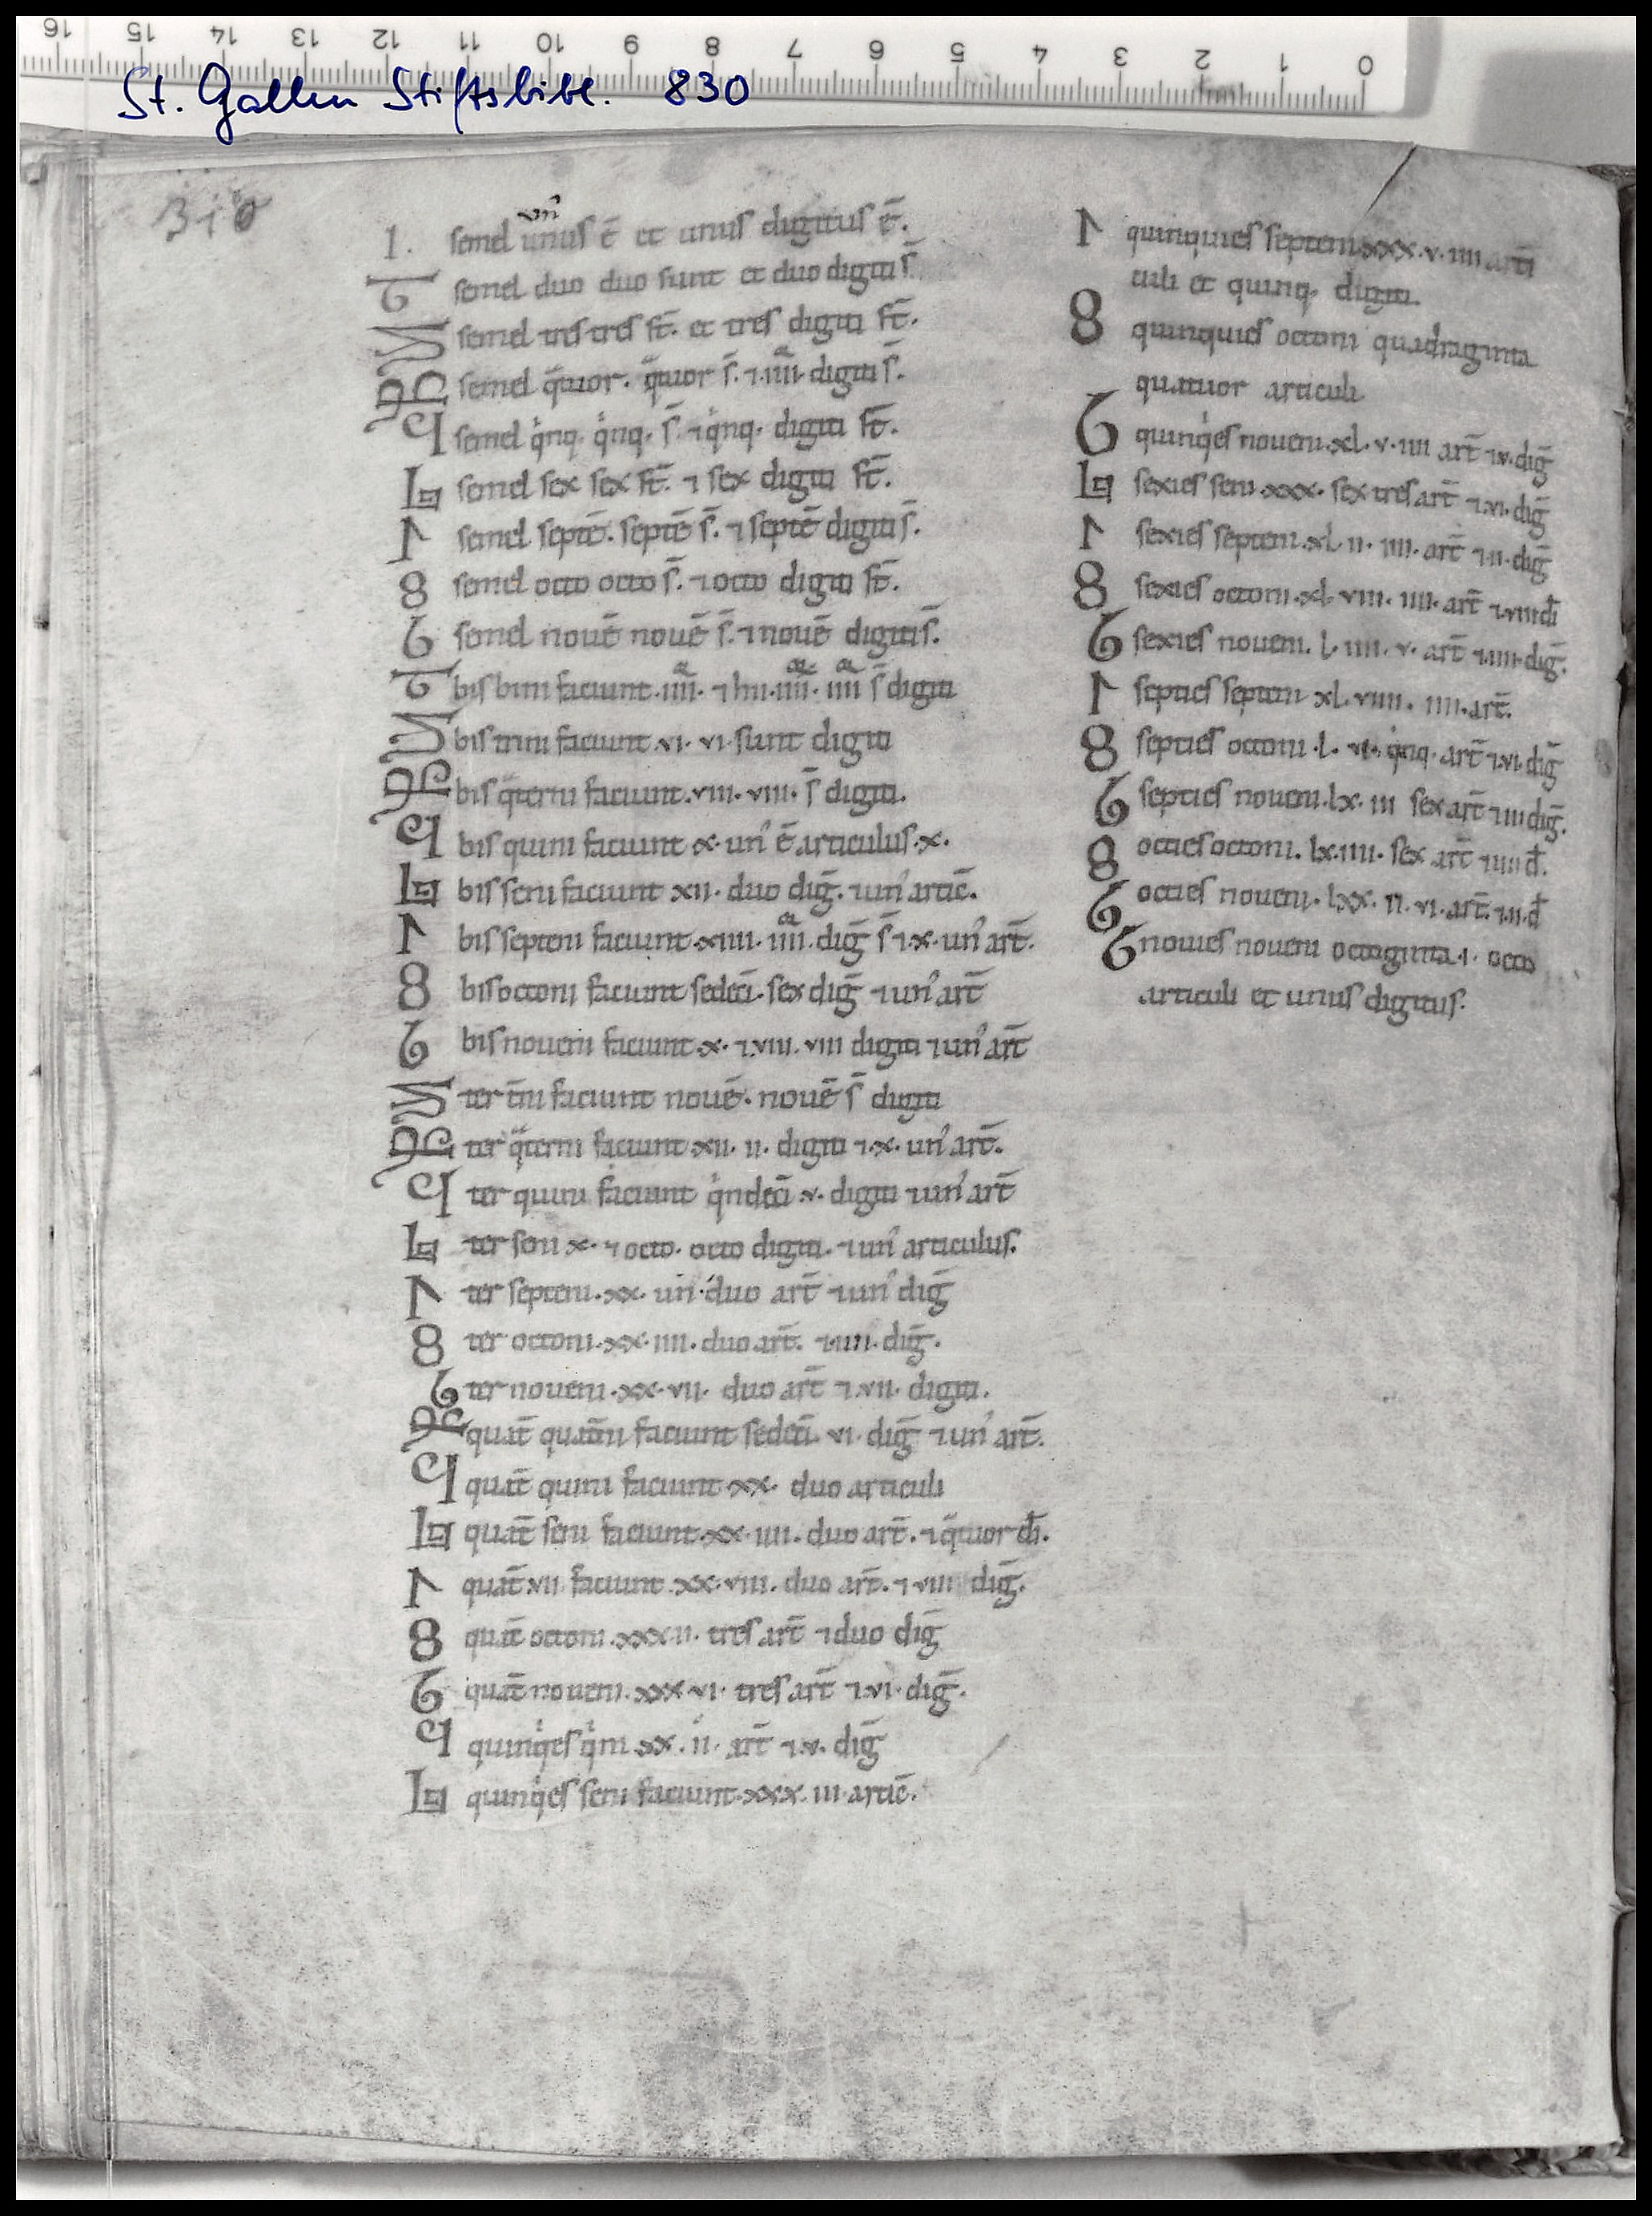 16 15 14 13 12 11 10 9 8 7 6 5 4 3 2 1 0
St. Gallen Stiftsbibl. 830
310
un᷒
1. semel unus ē et unus digitus ē.
semel duo duo sunt et duo digiti s̄
semel tres tres st̄. et tres digiti st̄.
semel qᵃtuor. qᵃtuor s̄. ⁊ .iiiiᵒʳ. digiti s̄.
semel qⁱnq. qⁱnq. s̄. ⁊ qⁱnq. digiti st̄.
semel sex sex st̄. ⁊ sex digiti st̄.
semel septē. septē s̄. ⁊ septē digiti s̄.
8 semel octo octo s̄. ⁊ octo digiti st̄.
semel nouē nouē s̄. ⁊ nouē digiti s̄.
bis bini faciunt .iiiiᵒʳ. ⁊ .iiiiᵒʳ. iiiiᵒʳ s̄ digiti
bis trini faciunt .vi. vi. sunt digiti
bis qᵃterni faciunt .viii. viii. s̄ digiti.
bis quini faciunt .x. un᷒ ē articulus .x.
bis seni faciunt xii. duo dig̅. ⁊ un᷒ artic̄.
bis septeni faciunt .xiiii. iiiiᵒʳ. dig̅ s̄ ⁊ .x. un᷒ art̄.
8 bis octoni faciunt sedeci. sex dig̅ ⁊ un᷒ art̄
bis noueni faciunt .x. ⁊ .viii. viii digiti ⁊ un᷒ art̄
ter t̄ni faciunt nouē. nouē s̄ digiti
ter qᵃterni faciunt .xii. ii. digiti ⁊ .x. un᷒ art̄.
ter quini faciunt qⁱndeci .v. digiti ⁊ un᷒ art̄
ter seni x. ⁊ octo. octo digiti. ⁊ un᷒ articulus.
ter septeni .xx. un᷒ duo art̄ ⁊ un᷒ dig̅
8 ter octoni .xx. iiii. duo art̄. ⁊ .iiii. dig̅.
ter noueni .xx. vii. duo art̄ ⁊ .vii. digiti.
quat̄ quat̄ni faciunt sedeci. vi. dig̅ ⁊ un᷒ art̄.
quat̄ quini faciunt .xx. duo articuli
quat̄ seni faciunt .xx. iiii. duo art̄. ⁊ qᵃtuor di.
quat̄ .vii. faciunt .xx. viii. duo art̄. ⁊ viii dig̅.
8 quat̄ octoni .xxx. ii. tres art̄ ⁊ duo dig̅
quat̄ noueni .xxx. vi. tres art̄ ⁊ .vi. dig̅.
quinqⁱes qⁱni .xx. ii. art̄ ⁊ .v. dig̅
quinqⁱes seni faciunt .xxx. iii. artic̄.
quinquies septeni .xxx. v. iiii arti
culi et quinq. digiti.
8 quinquies octoni quadraginta
quatuor articuli
quinqⁱes noueni .xl. v. iiii art̄ ⁊ .v. dig̅
sexies seni .xxx. sex tres art̄ ⁊ .vi. dig̅
sexies septeni .xl. ii. iiii. art̄ ⁊ .ii. dig̅
8 sexies octoni .xl. viii. iiii. art̄ ⁊ .viii di
sexies noueni. l. iiii. v. art̄ ⁊ .iiii. dig̅.
septies septeni xl. viiii. iiii. art̄.
8 septies octoni .l. vi. qⁱnq. art̄ ⁊ .vi. dig̅
septies noueni .lx. iii sex art̄ ⁊ iii dig̅.
8 octies octoni. lx. iiii. sex art̄ ⁊ iiii d̄.
octies noueni. lxx. ii. vi. art̄. ⁊ .ii. d̄
nouies noueni octoginta .i. octo
articuli et unus digitus.